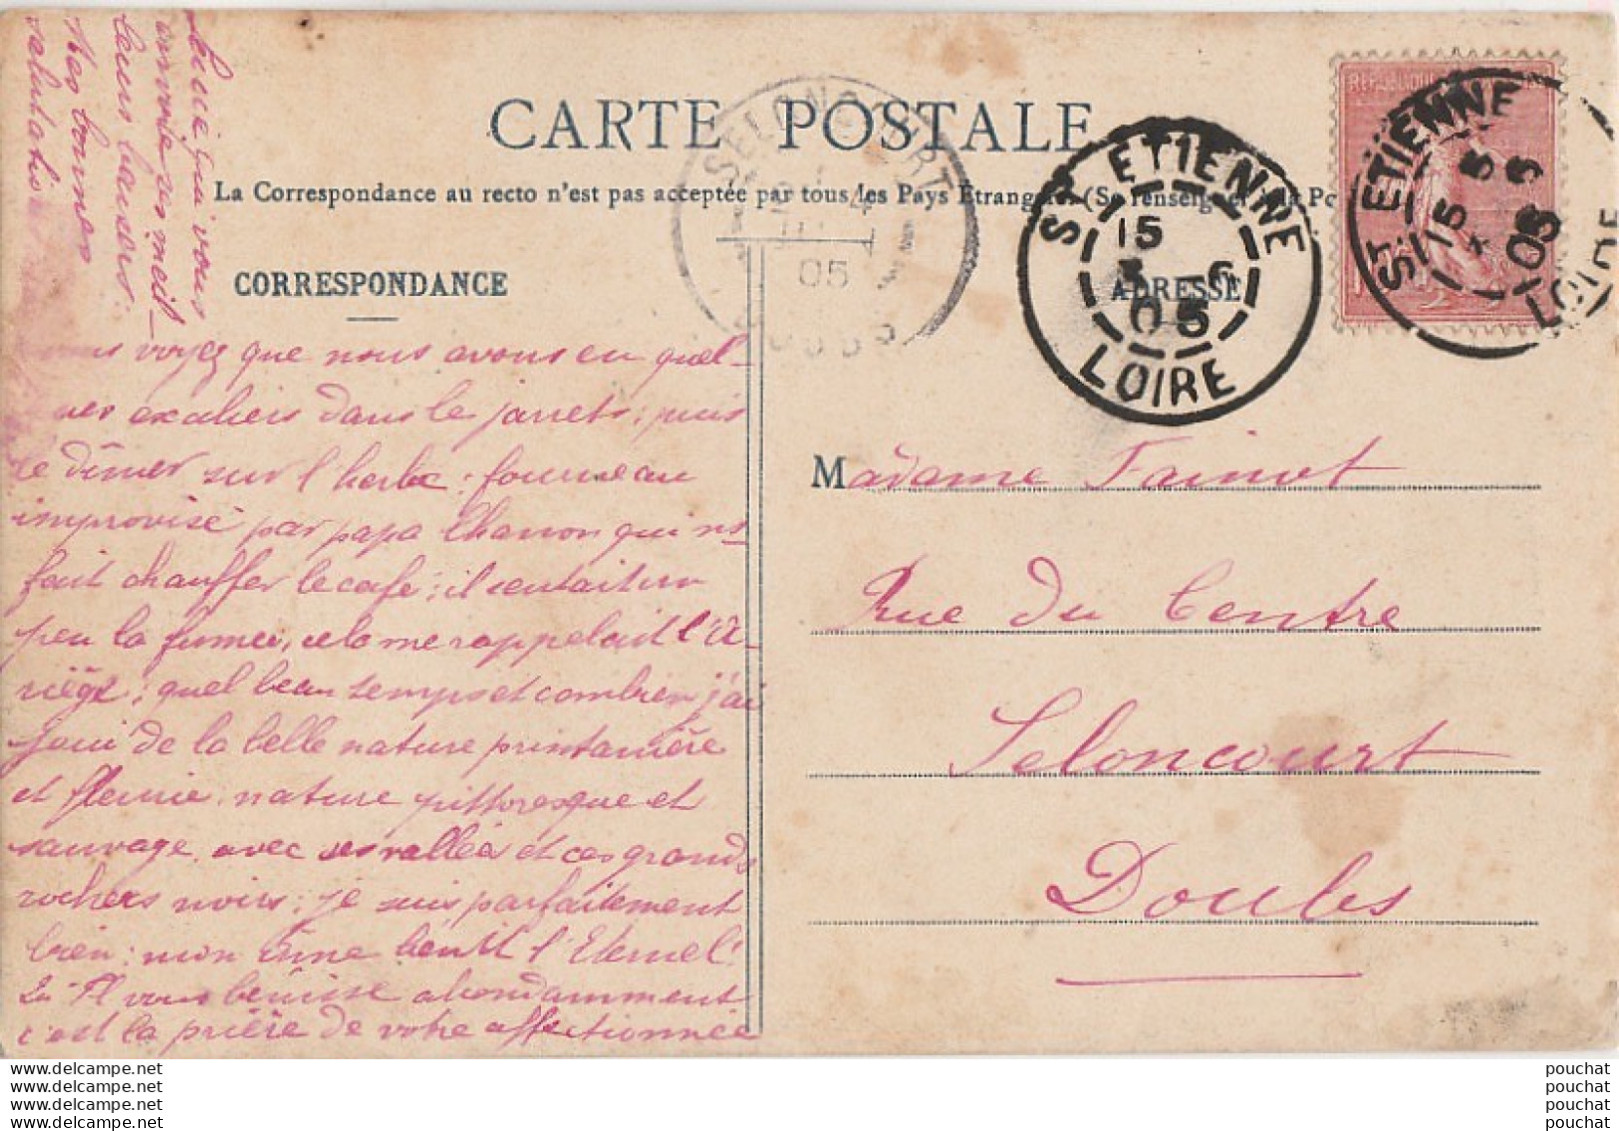 CARTE POSTALE
La Correspondance au recto n'est pas acceptée par tous les Pays Etrangers (Se renseigner à la Po
CORRESPONDANCE
ADRESSE
SELONCOURT
4
05
DOUBS
ST ETIENNE
15
5 - 6
05
LOIRE
REPUBLIQUE
ST ETIENNE
15 5
05
LOIRE
vous voyez que nous avons eu quel-
ques escaliers dans le jarrets; puis
le dîner sur l'herbe; fourneau
improvisé par papa Chanon qui ns
fait chauffer le café; il sentait un
peu la fumée, cela me rappelait l'A-
riège; quel beau temps et combien j'ai
joui de la belle nature printanière
et fleurie, nature pittoresque et
sauvage avec ses vallées et ces grands
rochers noirs; je suis parfaitement
bien; mon âme bénit l'Eternel!
Qu'Il vous bénisse abondamment
c'est la prière de votre affectionnée
Lucie qui vous
envoie ses meil-
leurs baisers.
Mes bonnes
salutations
Madame Fainot
Rue du Centre
Seloncourt
Doubs
www.delcampe.net
www.delcampe.net
www.delcampe.net
www.delcampe.net
pouchat
pouchat
pouchat
pouchat